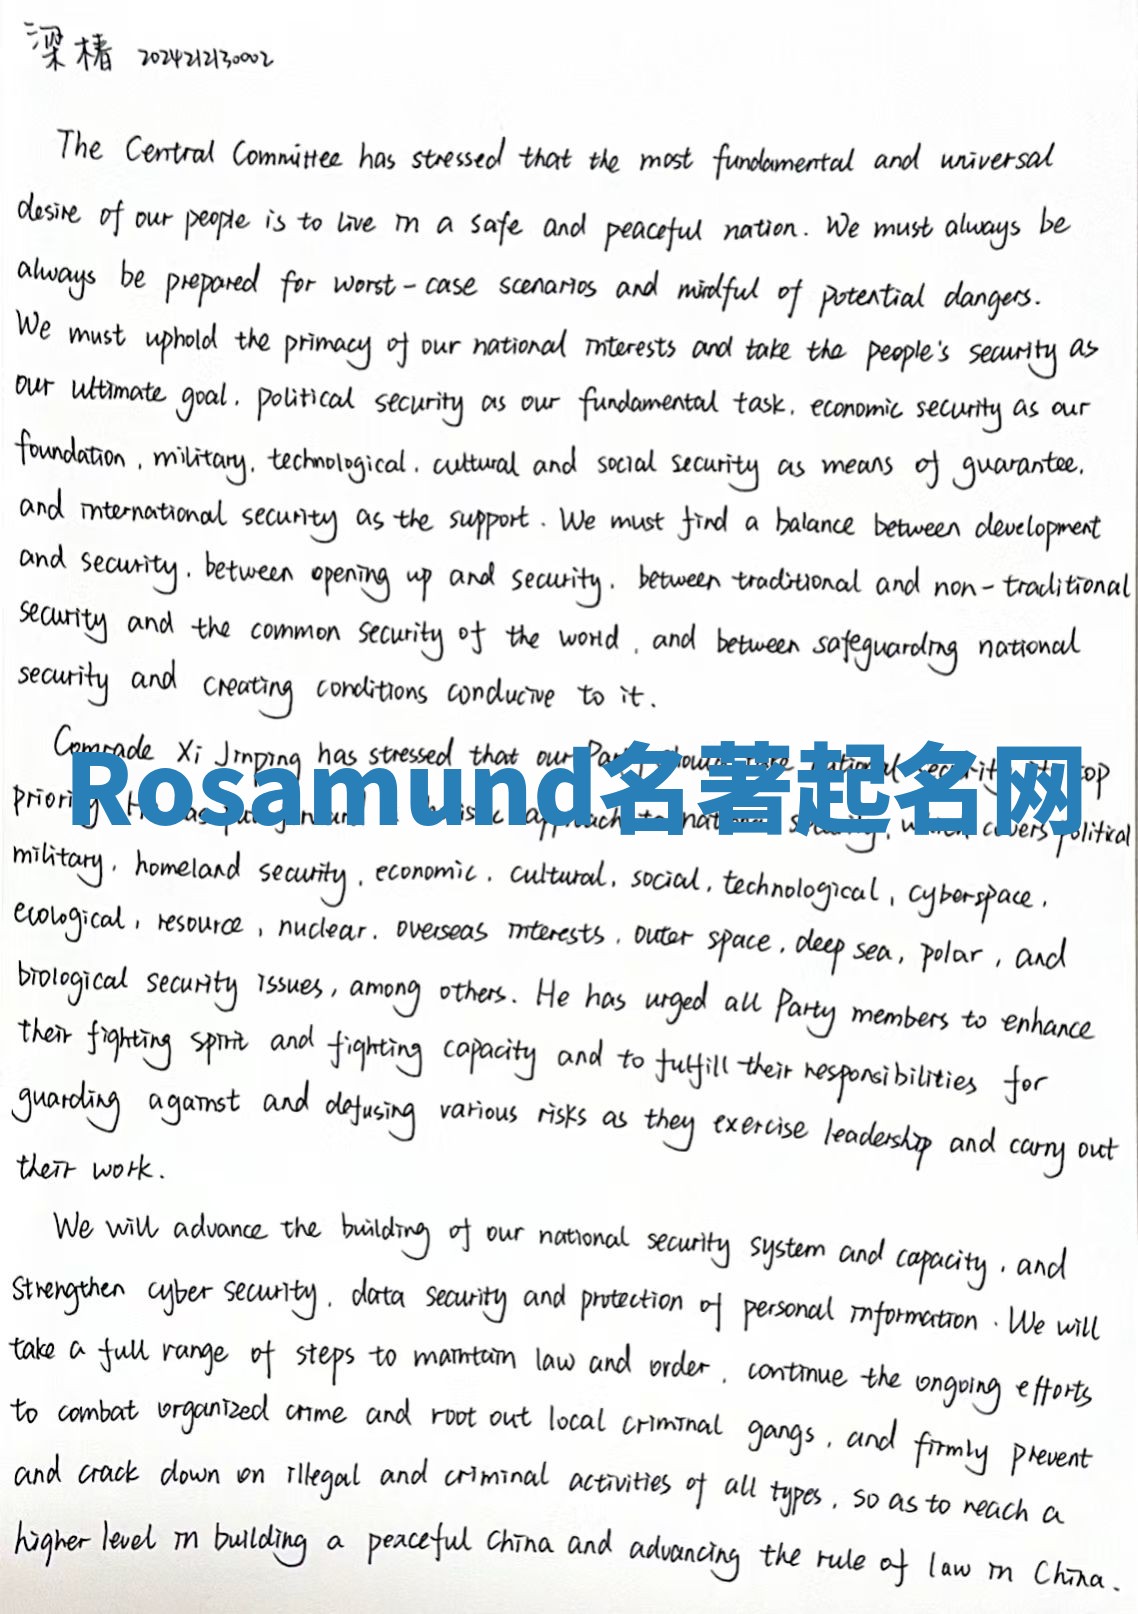 梁椿 2024212130002
The Central Committee has stressed that the most fundamental and universal
desire of our people is to live in a safe and peaceful nation. We must always be
always be prepared for worst-case scenarios and mindful of potential dangers.
We must uphold the primacy of our national interests and take the people's security as
our ultimate goal, political security as our fundamental task, economic security as our
foundation, military, technological, cultural and social security as means of guarantee,
and international security as the support. We must find a balance between development
and security, between opening up and security, between traditional and non-traditional
security and the common security of the world, and between safeguarding national
security and creating conditions conducive to it.
Comrade Xi Jinping has stressed that our Party should national security top
Rosamund名著起名网
priority. He has put approach to national security, which covers political
military, homeland security, economic, cultural, social, technological, cyberspace,
ecological, resource, nuclear, overseas interests, outer space, deep sea, polar, and
biological security issues, among others. He has urged all Party members to enhance
their fighting spirit and fighting capacity and to fulfill their responsibilities for
guarding against and defusing various risks as they exercise leadership and carry out
their work.
We will advance the building of our national security system and capacity, and
strengthen cyber security, data security and protection of personal information. We will
take a full range of steps to maintain law and order, continue the ongoing efforts
to combat organized crime and root out local criminal gangs, and firmly prevent
and crack down on illegal and criminal activities of all types, so as to reach a
higher level in building a peaceful China and advancing the rule of law in China.